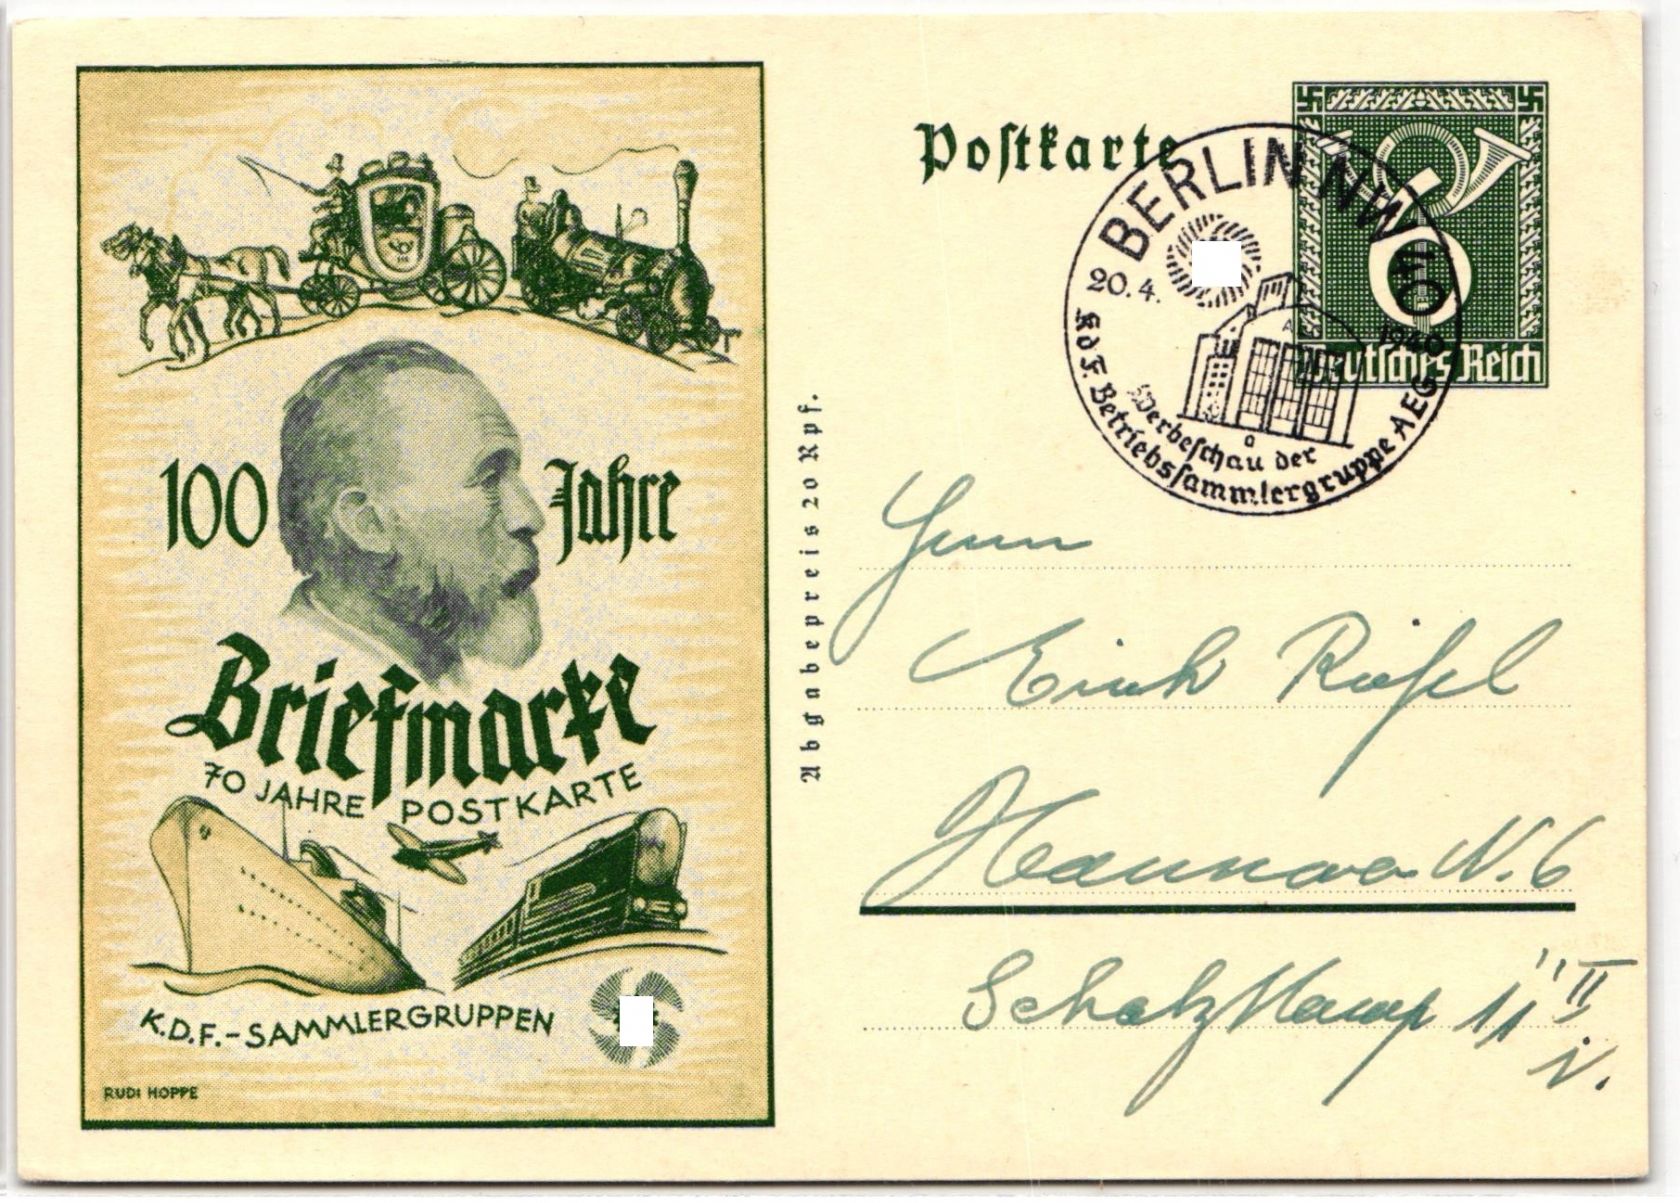 100 Jahre
Briefmarke
70 JAHRE POSTKARTE
K.D.F.-SAMMLERGRUPPEN
RUDI HOPPE
Abgabepreis 20 Rpf.
Postkarte
BERLIN NW 40
20.4. 1940
a
Werbeschau der
KdF. Betriebssammlergruppe AEG
6
Deutsches Reich
Herrn
Erich
Hannover N. 6
11 II